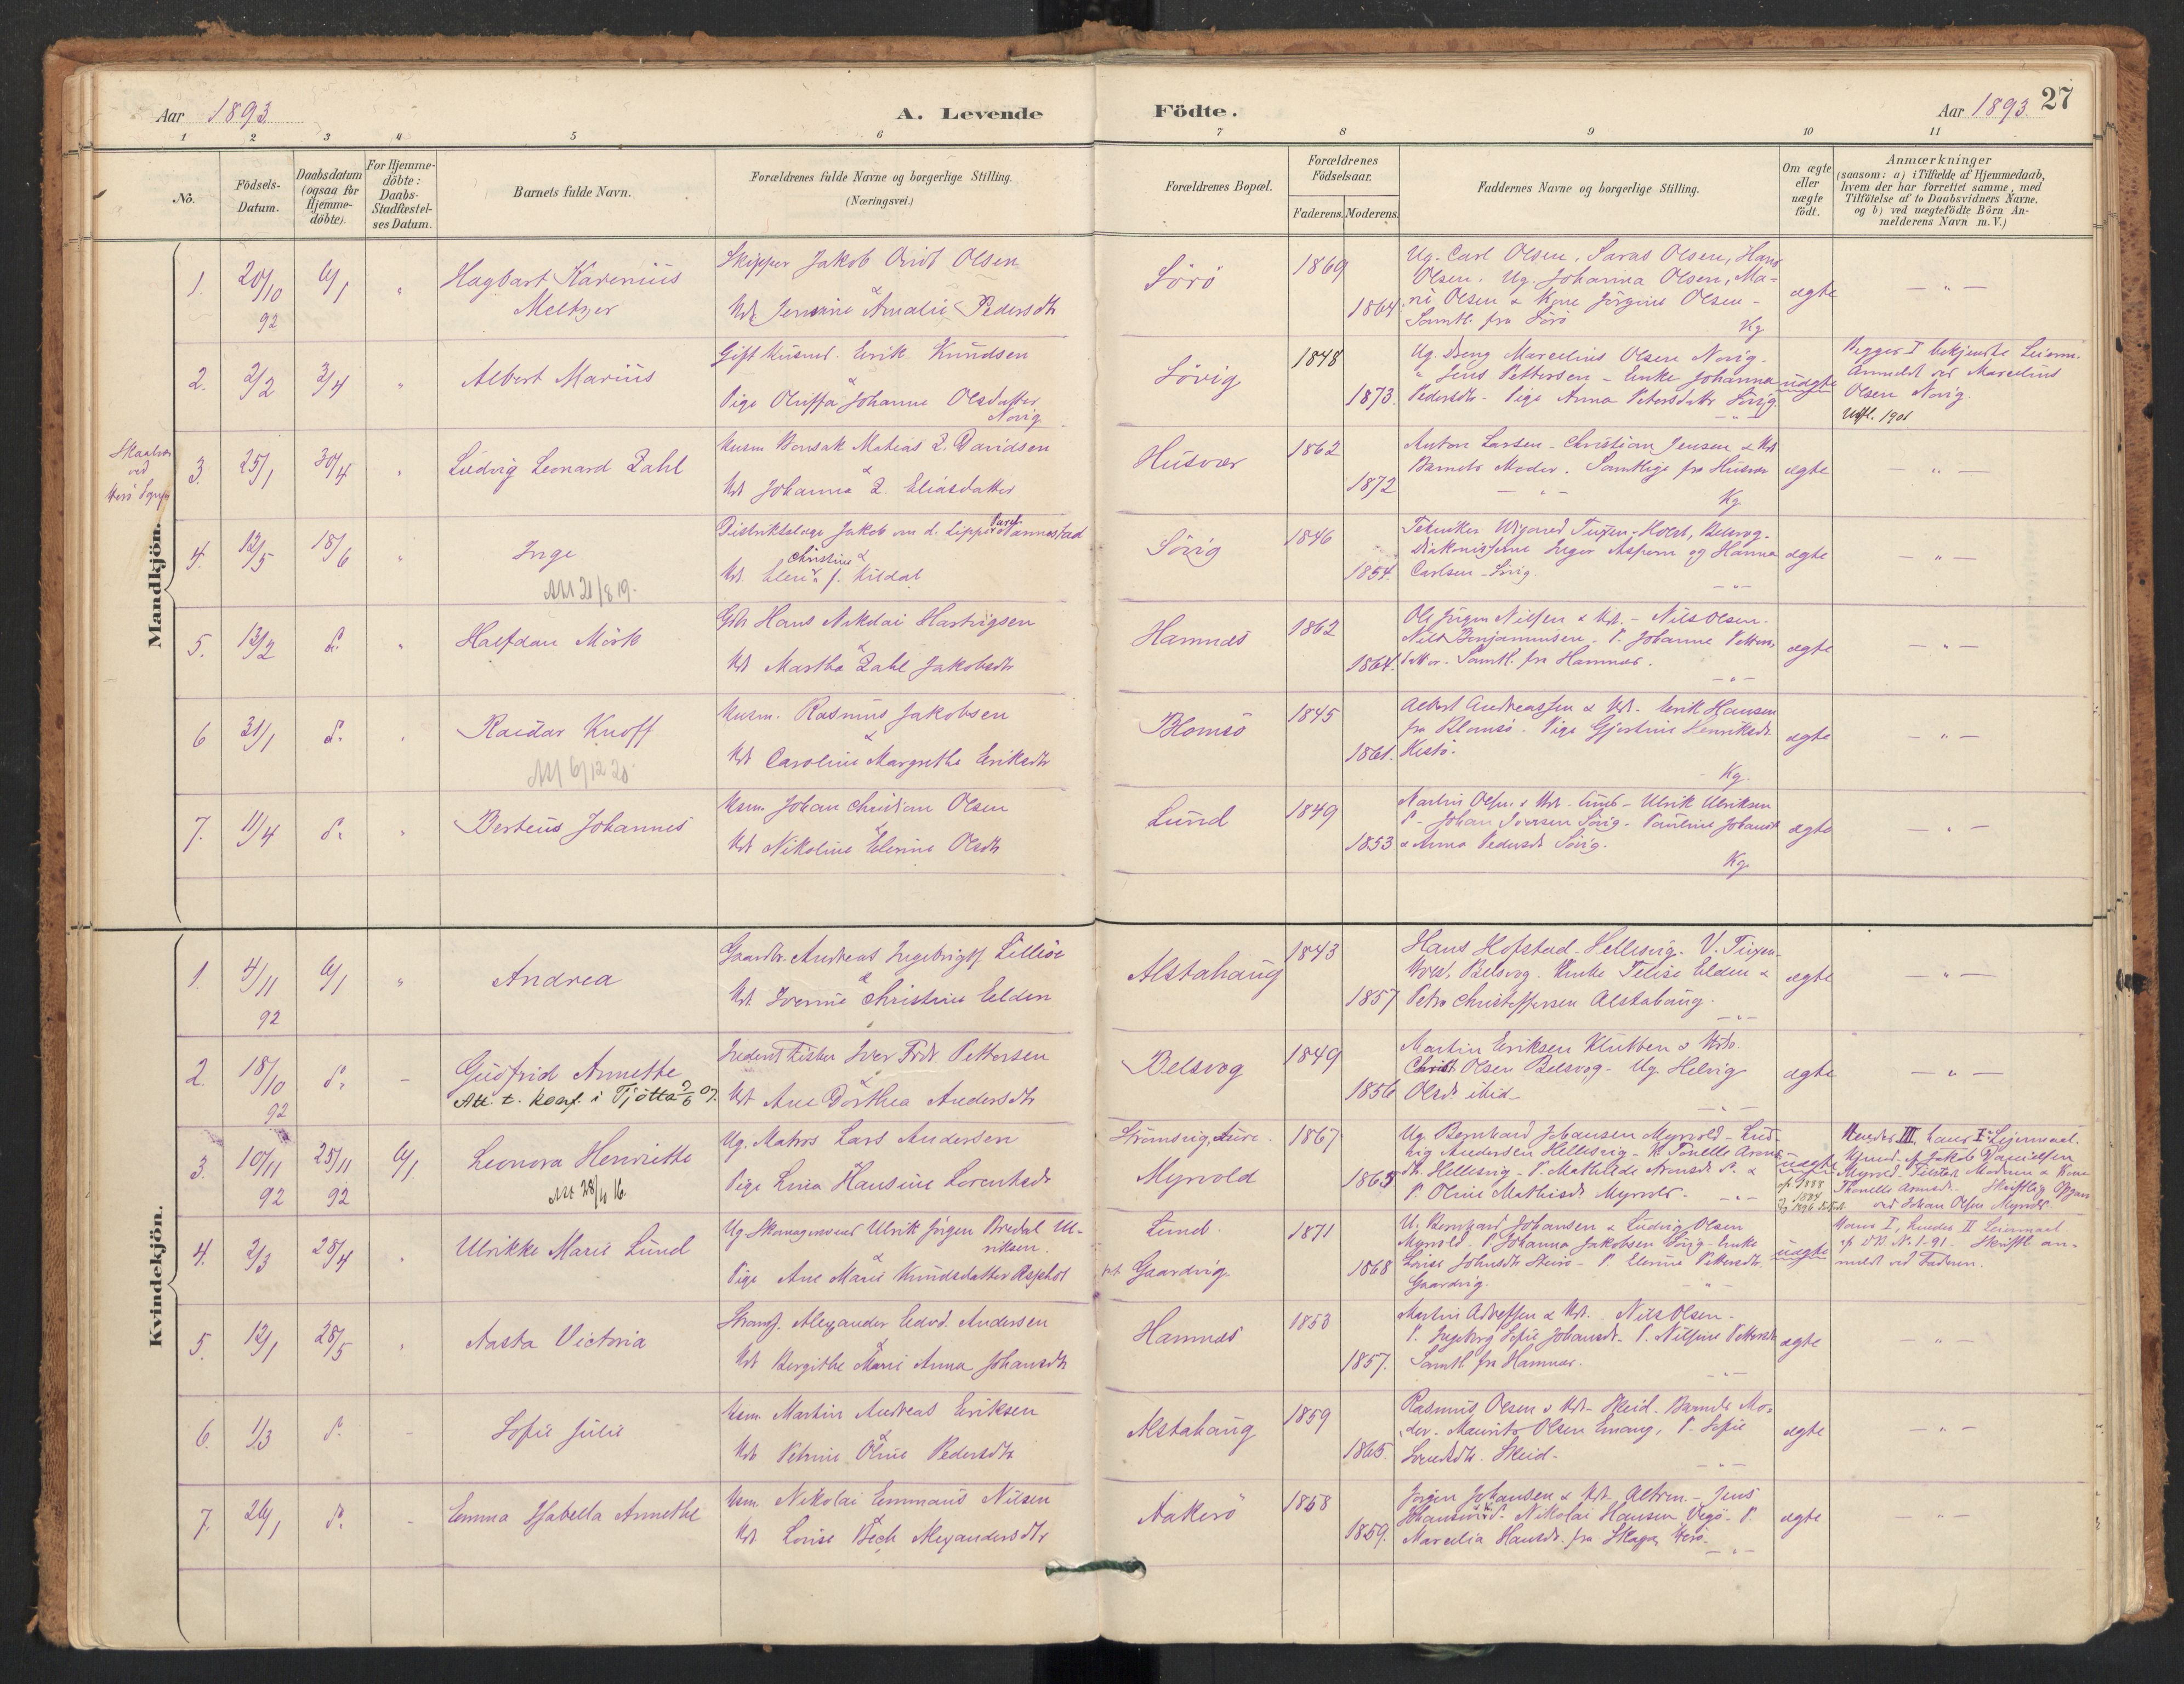 Aar 1893. A. Levende Födte. Aar 1893. 27
1 2 3 4 5 6 7 8 9 10 11
No.
Födsels-Datum.
Daabsdatum (ogsaa for Hjemme-döbte).
For Hjemme-döbte: Daabs-Stadfæstel-ses Datum.
Barnets fulde Navn.
Forældrenes fulde Navne og borgerlige Stilling.
(Næringsvei.)
Forældrenes Bopæl.
Forældrenes Födselsaar.
Faderens. Moderens.
Faddernes Navne og borgerlige Stilling.
Om ægte eller uægte födt.
Anmærkninger
(saasom: a) i Tilfælde af Hjemmedaab,
hvem der har forrettet samme, med
Tilföielse af to Daabsvidners Navne.
og b) ved uægtefödte Börn An-
melderens Navn m. V.)
Mandkjön.
1. 20/10 92 6/1 " Hagbart Karenius Meltzer
Skipper Jakob Arnt Olsen
&
Kst Jensine Amalie Pedersdtr
Sörö 1869 1864
Ug. Carl Olsen, Olsen, Hans
Olsen. Ug. Johanna Olsen, Ma-
rie Olsen & Kone Jörgine Olsen -
Samtl. fra Sörö Kg
ægte — " —
2. 2/2 3/4 " Albert Marius
Gift Husmd. Erik Knudsen
&
Pige Oluffa Johanne Olsdatter
Novig
Sövig 1848 1873.
Ug. Dreng Marcelius Olsen Novig.
" Jens Pettersen - Enke Johanna
Pedersdtr - Pige Anna Petersdatter Sövig.
uægte
Begges I bekjendte Leierm.
Anmeldt ved Marcelius
Olsen Novig.
Udfl. 1901
3. 25/1 30/4 " Ludvig Leonard Zahl
Husm Bonsak Matias Z. Davidsen
&
Kst Johanna Z. Eliasdatter
Husvær 1862 1872
Anton Larsen - Christian Jensen & Kst
Barnets Moder. Samtlige fra Husvær
— " — Kg.
ægte — " —
4. 12/5 18/6 " Inge
Att 21/8 19.
Distriktslæge Jakob v. d. Lippe Parel. Vannestad
Christine &
Kst. f. Kildal
Sövig 1846 1854.
Tuxen-Holst, Belsvog.
Inger Aspern og Hanna
Carlsen - Sövig.
ægte — " —
5. 13/2 d. " Halfdan Mörk
Gbr Hans Nikolai Hartvigsen
&
Kst Martha Zahl Jakobsdtr
Hamnæs 1862 1864.
Ole Jörgen Nilsen & Kst. - Nils Olsen.
Nils Benjaminsen. P. Johanne Petters-
datter. Samtl. fra Hamnæs.
ægte — " —
6 31/1 d. " Raidar Knoff
Att 6/12 20.
Husm. Rasmus Jakobsen
&
Kst Caroline Margrethe Eriksdtr
Blomsö 1845 1861.
Albert Andreassen & Kst. Erik Hansen
fra Blomsö. Pige Gjertine Henriksdtr
Hestö. Kg.
ægte — " —
7. 11/4 d. " Berteus Johannes
Husm. Johan Christian Olsen
&
Kst Nikoline Elenne Olsdtr
Lund 1849 1853
Martin Olsen & Kst. Lund - Ulrik Ulriksen
- Johan Iversen Sövig - Pauline Johansdtr
& Anna Pedersdtr Sövig. Kg.
ægte — " —
Skaalvær
ved
Herö Sogn
Kvindekjön.
1. 4/11 92 6/1 " Andrea
Gaardbr. Andreas Ingebrigts. Lilleöe
&
Kst. Iverine Christine Elden
Alstahaug 1843 1857
Hans Hofstad - Hellesvig. V. Tuxen-
Holst, Belsvog. Enke Felise Elden &
Petra Christoffersen Alstahaug.
ægte — " —
2. 18/10 92 d. - Gudfrid Annette
Att. t. konf. i Tjötta 7/6 07.
Fisker Iver Fredr Pettersen
&
Kst Ane Dorthea Andersdtr
Belsvog 1849 1856
Martin Eriksen Klubben & Kst.
Christ. Olsen Belsvog - Ug. Helvig
Olsdtr ibid -
ægte — " —
3. 10/11 92 25/11 92 6/1 Leonora Henriette
Att 28/4 16.
Ug. Matros Lars Andersen
&
Pige Lina Hansine Lorentsdtr
Strömsvig,
Myrvold 1867 1865
Ug. Bernhard Johansen Myrvold - Lud-
vig Andersen Hellesvig - K Tonelle Arnts-
dtr. Hellesvig - P. Mathilde Arntsdtr &
P. Oline Mathisdtr Myrvold. — " —
uægte
Hendes III, hans I Leiermaal.
Hjemmed. af Jakob Danielsen
Myrvold - Tilstede Modren & Kone
Thonelle Arntsdtr. Skriftlig Opgave
ved Johan Olsen Myrvold
4. 2/3 28/4 " Ulrikke Marie Lund
Ug. Skomagersvend Ulrik Jörgen Bredal Ul-
riksen.
&
Pige Ane Marie Knudsdatter
Lund
pt Gaardvig 1871 1868
U. Bernhard Johansen & Ludvig Olsen
Myrvold. P. Johanna Jakobsen Sövig. Enke
Lovise Johnsdtr - P. Elenne Pettersdtr.
Gaardvig.
uægte
Hans I, hendes II Leiermaal
cfr DB. No. 1-91. Skriftl. an-
meldt ved Faderen.
5. 12/1 28/5 " Aasta Victoria
Strands. Alexander Edvd. Andersen
&
Kst Bergithe Marie Anna Johansdtr
Hamnæs 1853 1857.
Martin Adolfsen & Kst. Nils Olsen.
P. Ingeborg Sofie Johansdtr. P. Nilsine Pettersdtr
Samtl fra Hamnæs.
ægte — " —
6. 1/3 d. - Sofie Julie
Husm. Martin Andreas Eriksen
&
Kst Petrine Oline Pedersdtr
Alstahaug 1859 1865.
Rasmus Olsen & Kst. Skeid. Barnets Mo-
der. Mauritz Olsen Emang, P. Sofie
Skeid.
ægte — " —
7. 26/1 d. - Emma Isabella Annette
Husm. Nikolai Emmaus Nilsen
&
Kst. Lovise Bech Alexandersdtr
Aakerö 1858 1859.
Jörgen Johansen & Kst. Altern. - Jens
Nikolai Hansen Vegö. P.
Marcelia Hansdtr. fra Skaga, Herö.
ægte — " —